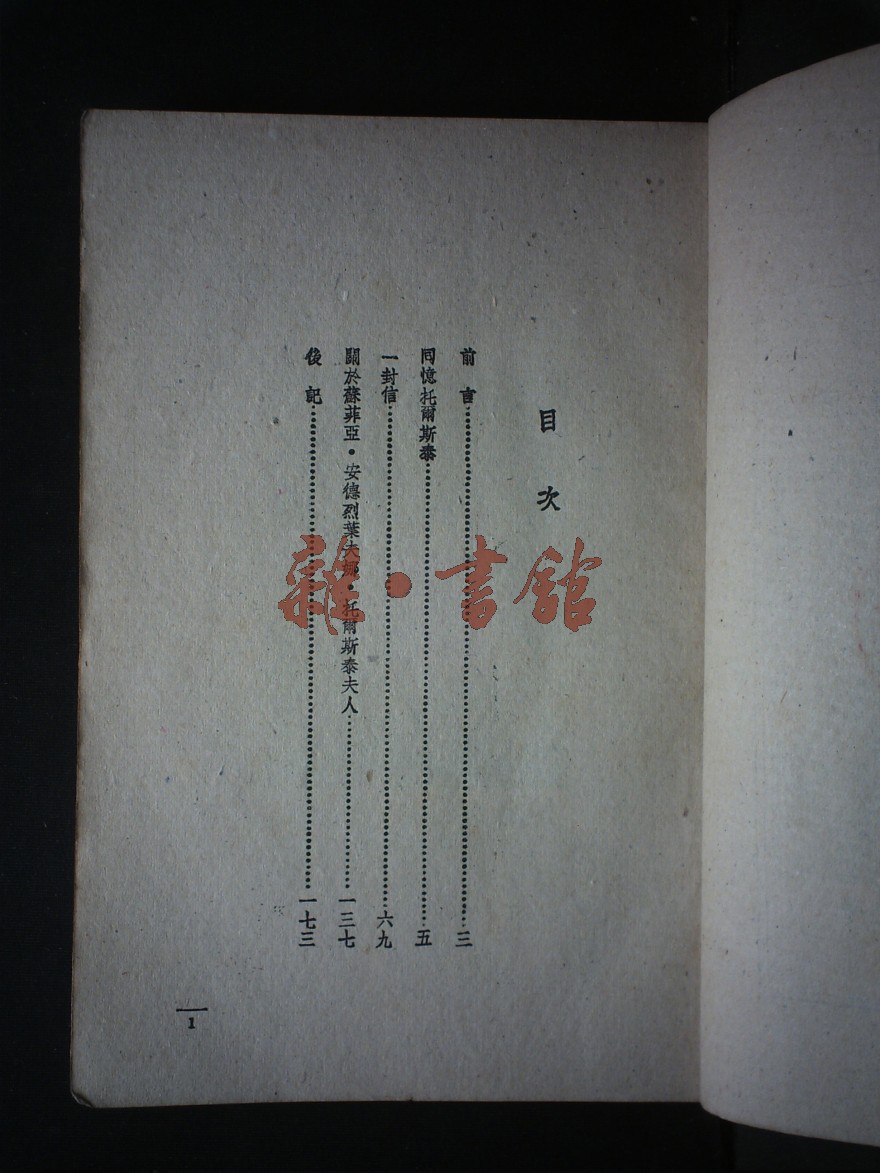 目次
前言……三
同憶托爾斯泰……五
一封信……六九
關於蘇菲亞・安德烈葉夫娜・托爾斯泰夫人……一三七
後記……一七三
1
雜・書館